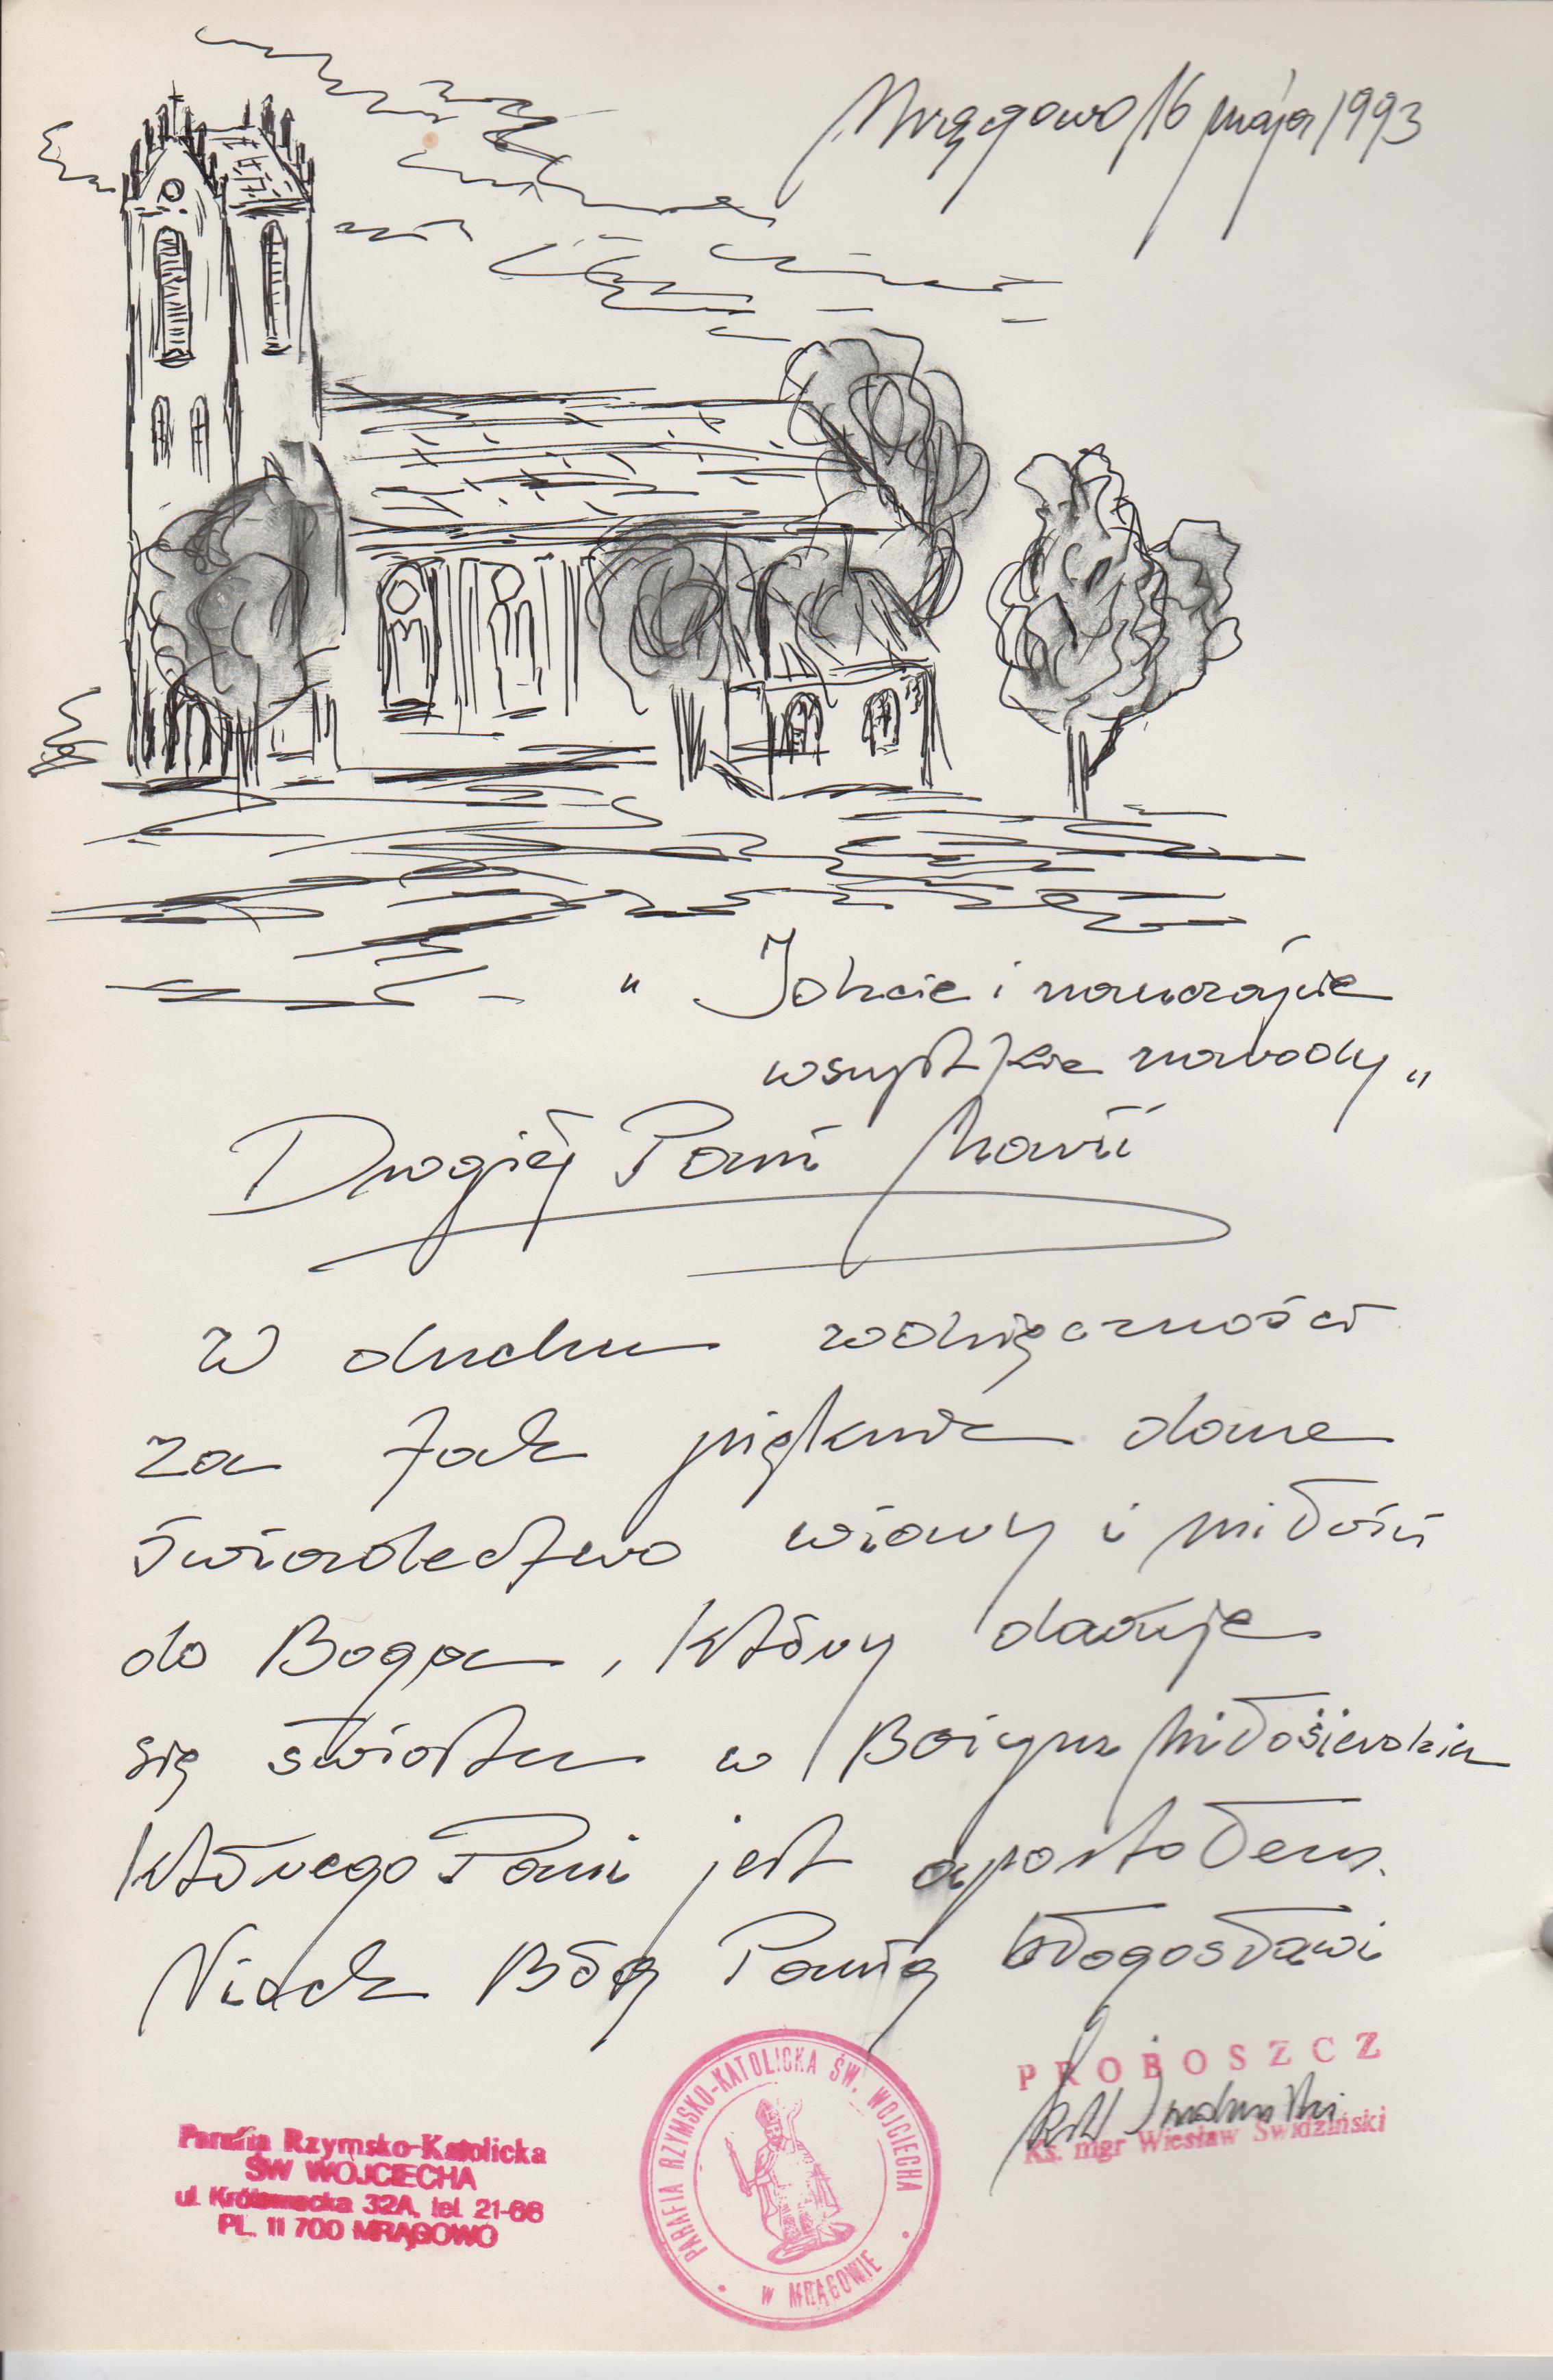 Mrągowo 16 maja 1993
" Idźcie i nauczajcie
wszystkie narody "
Drogiej Pani Marii
W duchu wdzięczności
za tak pięknie dane
świadectwo wiary i miłości
do Boga, który daruje
się światu w Bożym Miłosierdziu
którego Pani jest apostołem.
Niech Bóg Panią błogosławi
PROBOSZCZ
Ks. mgr Wiesław Świdziński
Parafia Rzymsko-Katolicka
ŚW WOJCIECHA
ul. Królewiecka 32A, tel. 21-66
PL. 11 700 MRĄGOWO
PARAFIA RZYMSKO-KATOLICKA ŚW. WOJCIECHA
W MRĄGOWIE